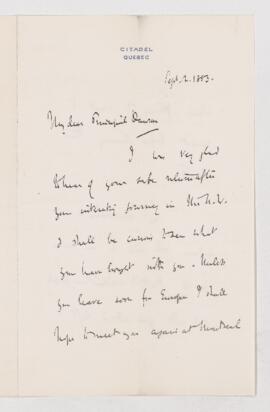 CITADEL
QUEBEC
Sept. 2. 1883.
My dear Principal Dawson
I was very glad
to hear of your safe return after
your interesting journey in the N.W.
I shall be curious to see what
you have brought with you. Unless
you leave soon for Europe I shall
hope to meet you again at Montreal